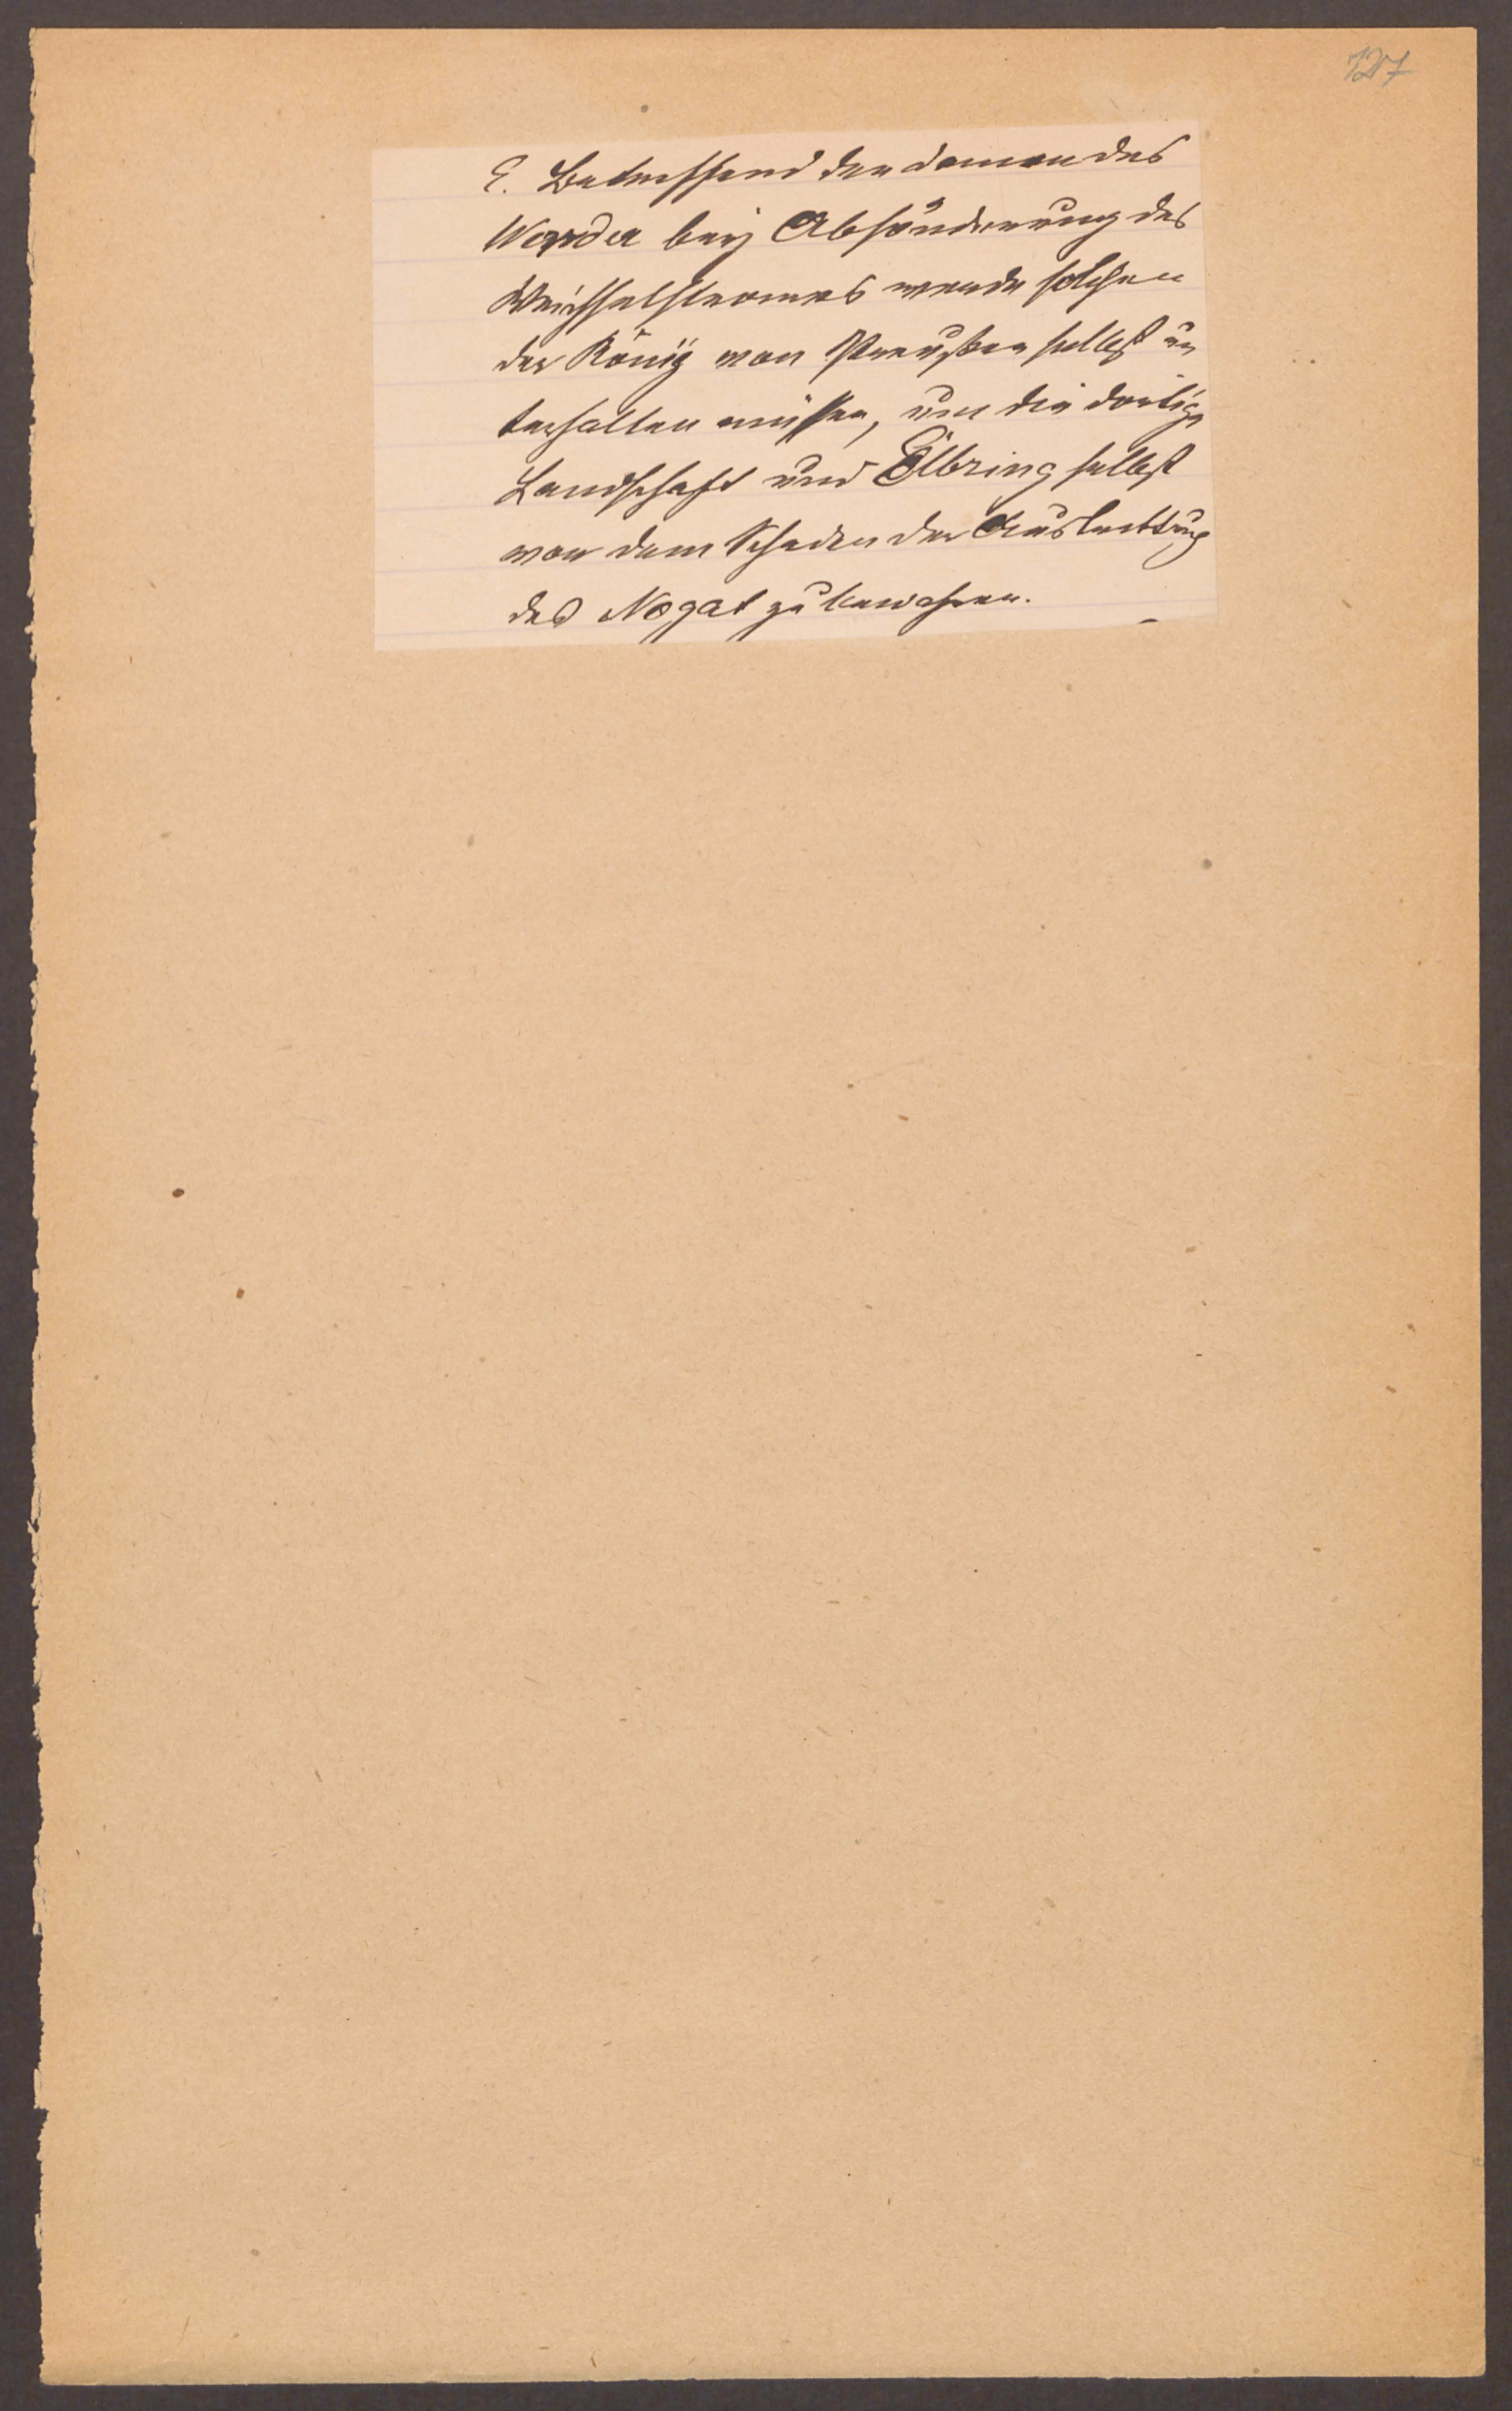 127
E. Betreffend den damm des
Werder bey Absönderung des
Weichselstromes werde solchen
der König von Preußen selbst un
terhalten müssen, um die dortige
Landschaft und Elbring selbst
von dem Schaden der
des Nogat zu bewahren.